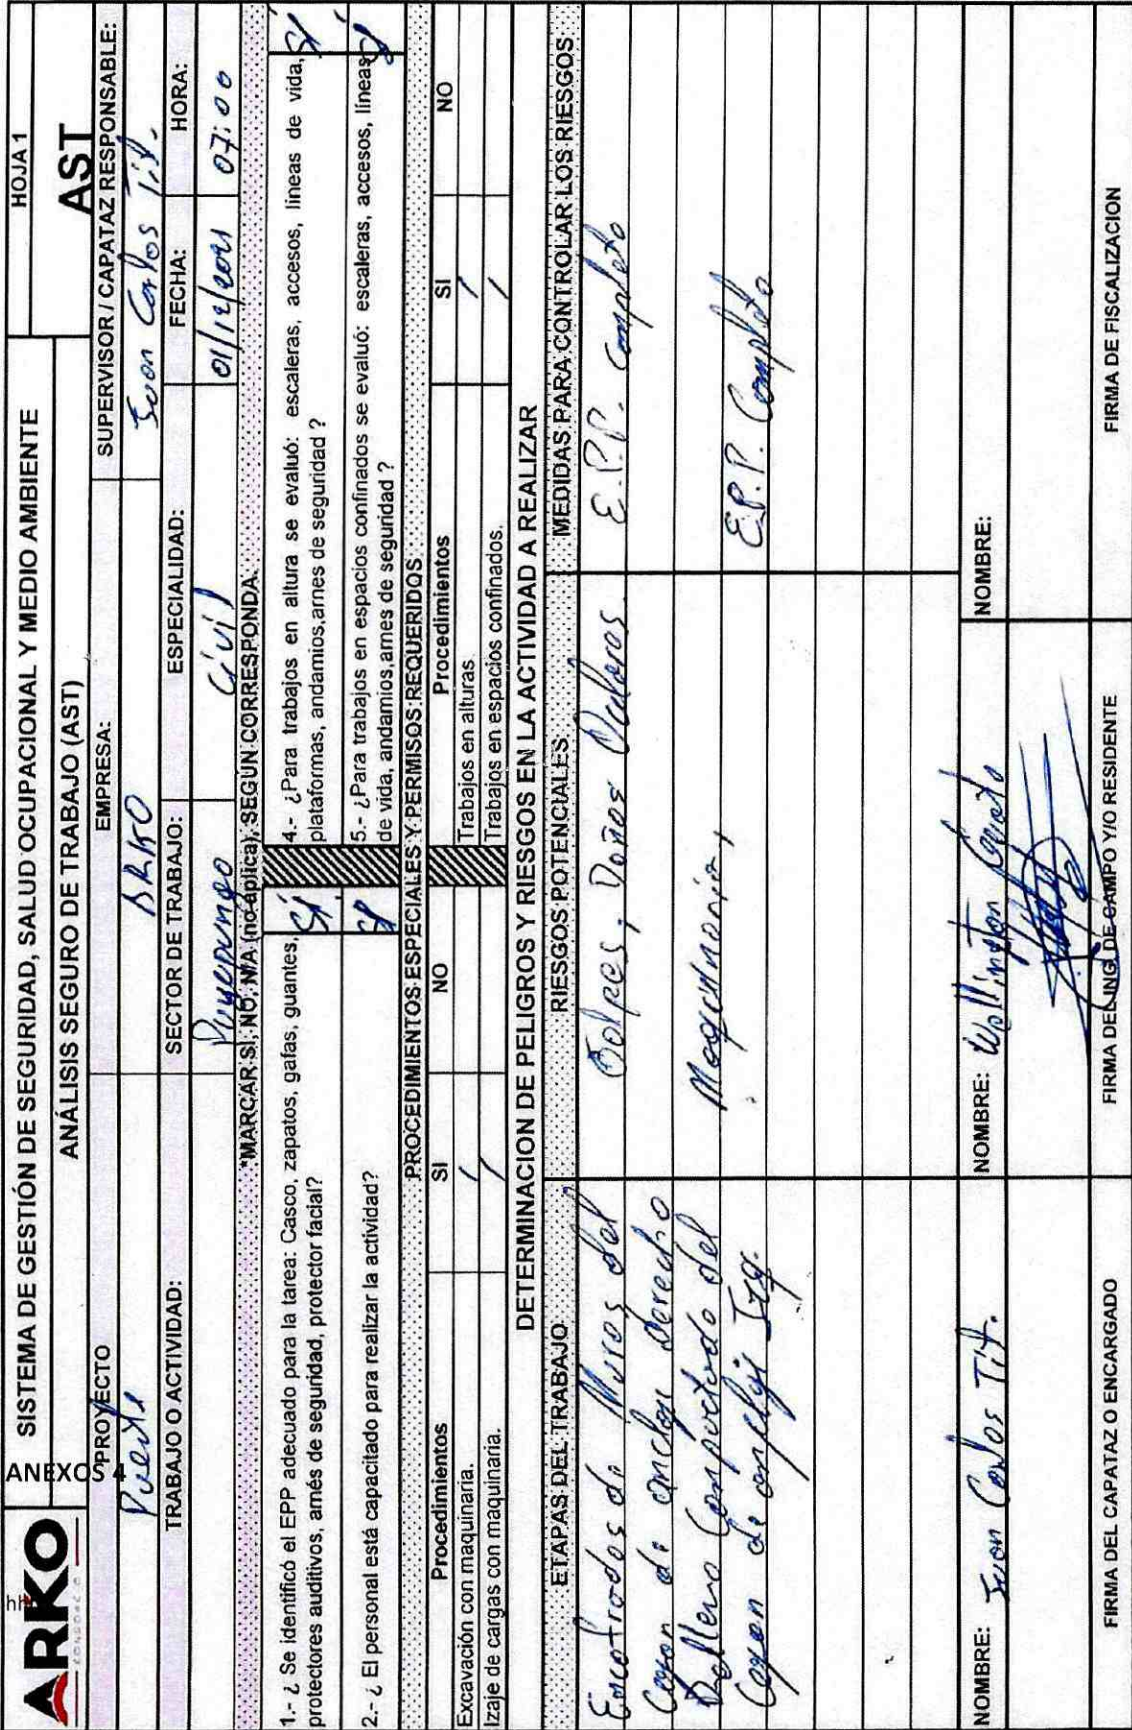 ARKO
CONDORCO
hh
ANEXOS 4
SISTEMA DE GESTIÓN DE SEGURIDAD, SALUD OCUPACIONAL Y MEDIO AMBIENTE
HOJA 1
ANÁLISIS SEGURO DE TRABAJO (AST)
AST
PROYECTO
EMPRESA:
SUPERVISOR / CAPATAZ RESPONSABLE:
Puente
ARKO
Juan Carlos Tit.
TRABAJO O ACTIVIDAD:
SECTOR DE TRABAJO:
ESPECIALIDAD:
FECHA:
HORA:
Puyopungo
Civil
01/12/2021
07:00
*MARCAR SI, NO, N/A (no aplica), SEGÚN CORRESPONDA.
1.- ¿ Se identificó el EPP adecuado para la tarea: Casco, zapatos, gafas, guantes,
protectores auditivos, arnés de seguridad, protector facial?
Sí
4.- ¿Para trabajos en altura se evaluó: escaleras, accesos, líneas de vida,
plataformas, andamios,arnes de seguridad ?
Sí
2.- ¿ El personal está capacitado para realizar la actividad?
Sí
5.- ¿Para trabajos en espacios confinados se evaluó: escaleras, accesos, líneas
de vida, andamios,arnes de seguridad ?
Sí
PROCEDIMIENTOS ESPECIALES Y PERMISOS REQUERIDOS
Procedimientos
SI
NO
Procedimientos
SI
NO
Excavación con maquinaria.
/
Trabajos en alturas
/
Izaje de cargas con maquinaria.
/
Trabajos en espacios confinados.
/
DETERMINACION DE PELIGROS Y RIESGOS EN LA ACTIVIDAD A REALIZAR
ETAPAS DEL TRABAJO
RIESGOS POTENCIALES
MEDIDAS PARA CONTROLAR LOS RIESGOS
Encofrados de Muros del
Golpes, Daños Oculares.
E.P.P. Completo
Cajon de anclaje Derecho
Relleno Compactado del
Maquinaria,
Cajon de anclaje Izq.
E.P.P. Completo
NOMBRE: Juan Carlos Tit.
NOMBRE: Wellington
NOMBRE:
FIRMA DEL CAPATAZ O ENCARGADO
FIRMA DEL ING. DE CAMPO Y/O RESIDENTE
FIRMA DE FISCALIZACION